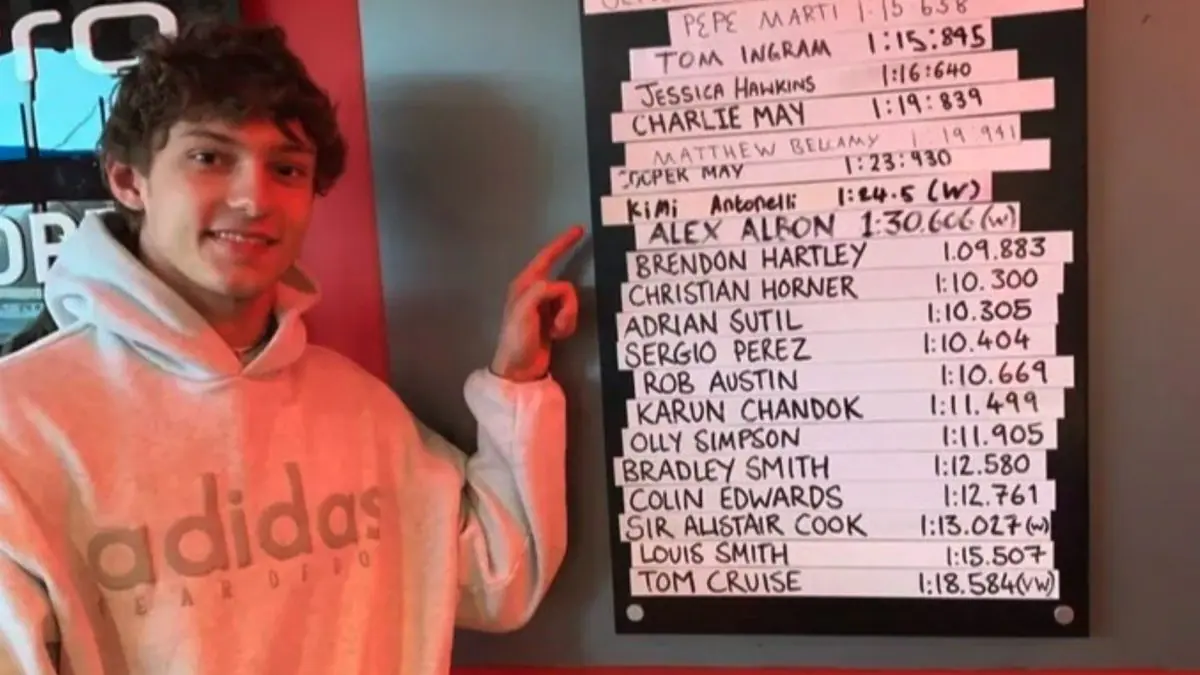 ro
OB
adidas
FEAR OF GOD
PEPE MARTI 1:15 638
TOM INGRAM 1:15:845
JESSICA HAWKINS 1:16:640
CHARLIE MAY 1:19:839
MATTHEW BELLAMY 1:19.941
COOPER MAY 1:23:930
KiMi Antonelli 1:24.5 (W)
ALEX ALBON 1:30.606 (W)
BRENDON HARTLEY 1.09.883
CHRISTIAN HORNER 1:10.300
ADRIAN SUTIL 1:10.305
SERGIO PEREZ 1:10.404
ROB AUSTIN 1:10.669
KARUN CHANDOK 1:11.499
OLLY SIMPSON 1:11.905
BRADLEY SMITH 1:12.580
COLIN EDWARDS 1:12.761
SIR ALISTAIR COOK 1:13.027(W)
LOUIS SMITH 1:15.507
TOM CRUISE 1:18.584(VW)